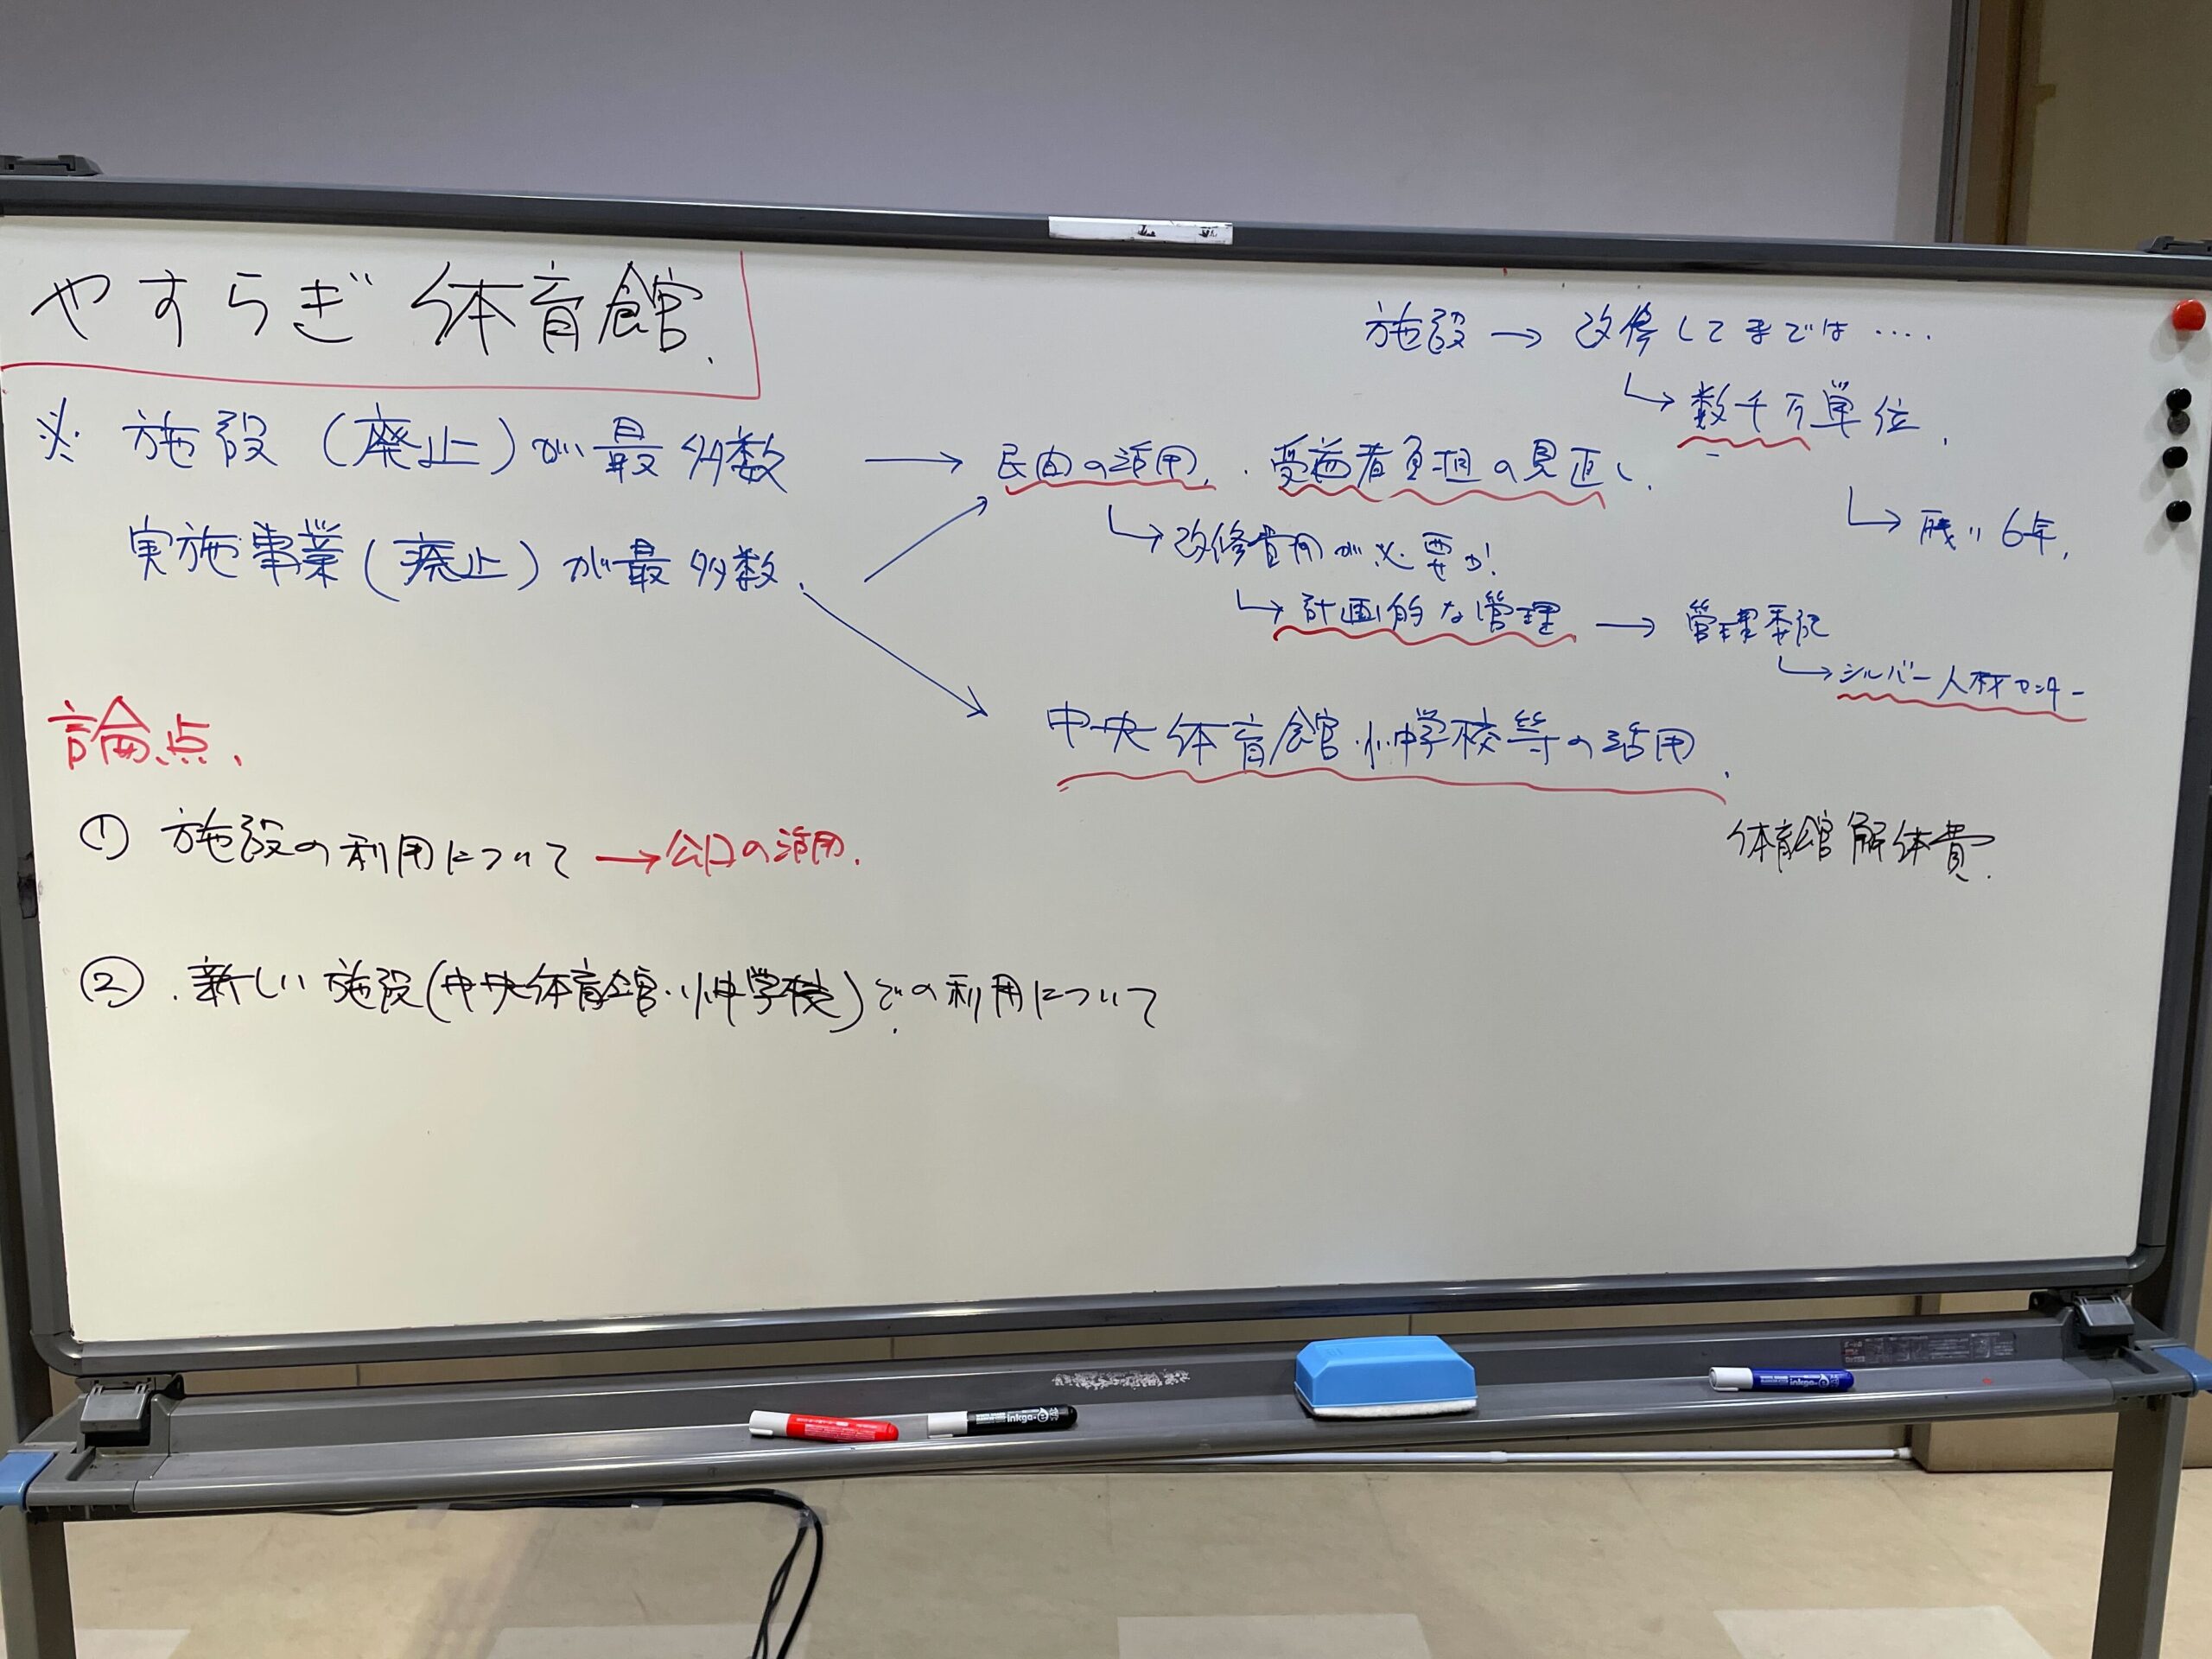 やすらぎ体育館.
施設 → 改修してまでは ‥‥
↳ 数千万単位.
↳ 残り6年.
※ 施設 (廃止) が最多数 → 民間の活用. ・受益者負担の見直し.
実施事業 (廃止) が最多数.
↳ 改修費用が必要か!
↳ 計画的な管理 → 管理委託
↳ シルバー人材センター
中央体育館・小中学校等の活用.
体育館解体費.
論点.
① 施設の利用について → の活用.
②. 新しい施設(中央体育館・小中学校)での利用について
inkga
inkga